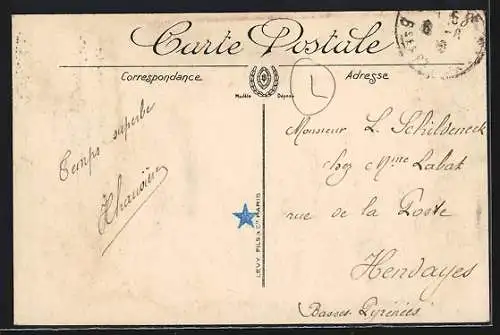 Carte Postale
Correspondance
Adresse
Modèle Déposé
L
Temps superbe
Monsieur L. Schildeneck
chez Mme Labat
rue de la Poste
Hendayes
Basses-Pyrénées
LEVY FILS & Cie PARIS